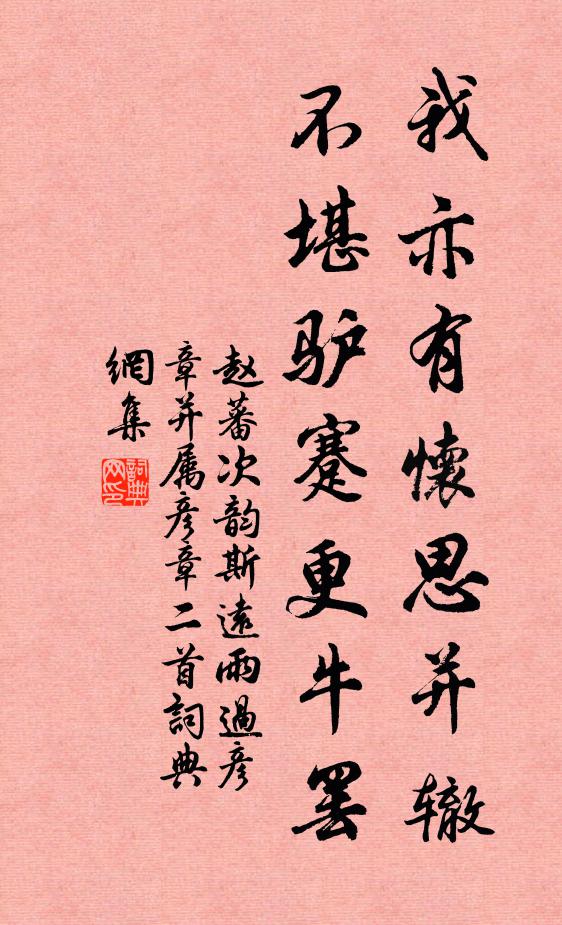 我亦有懷思并辙
不堪驴蹇更牛罢
赵蕃次韵斯遠雨過彦
章并属彦章二首詞典
網集
詞典
网印